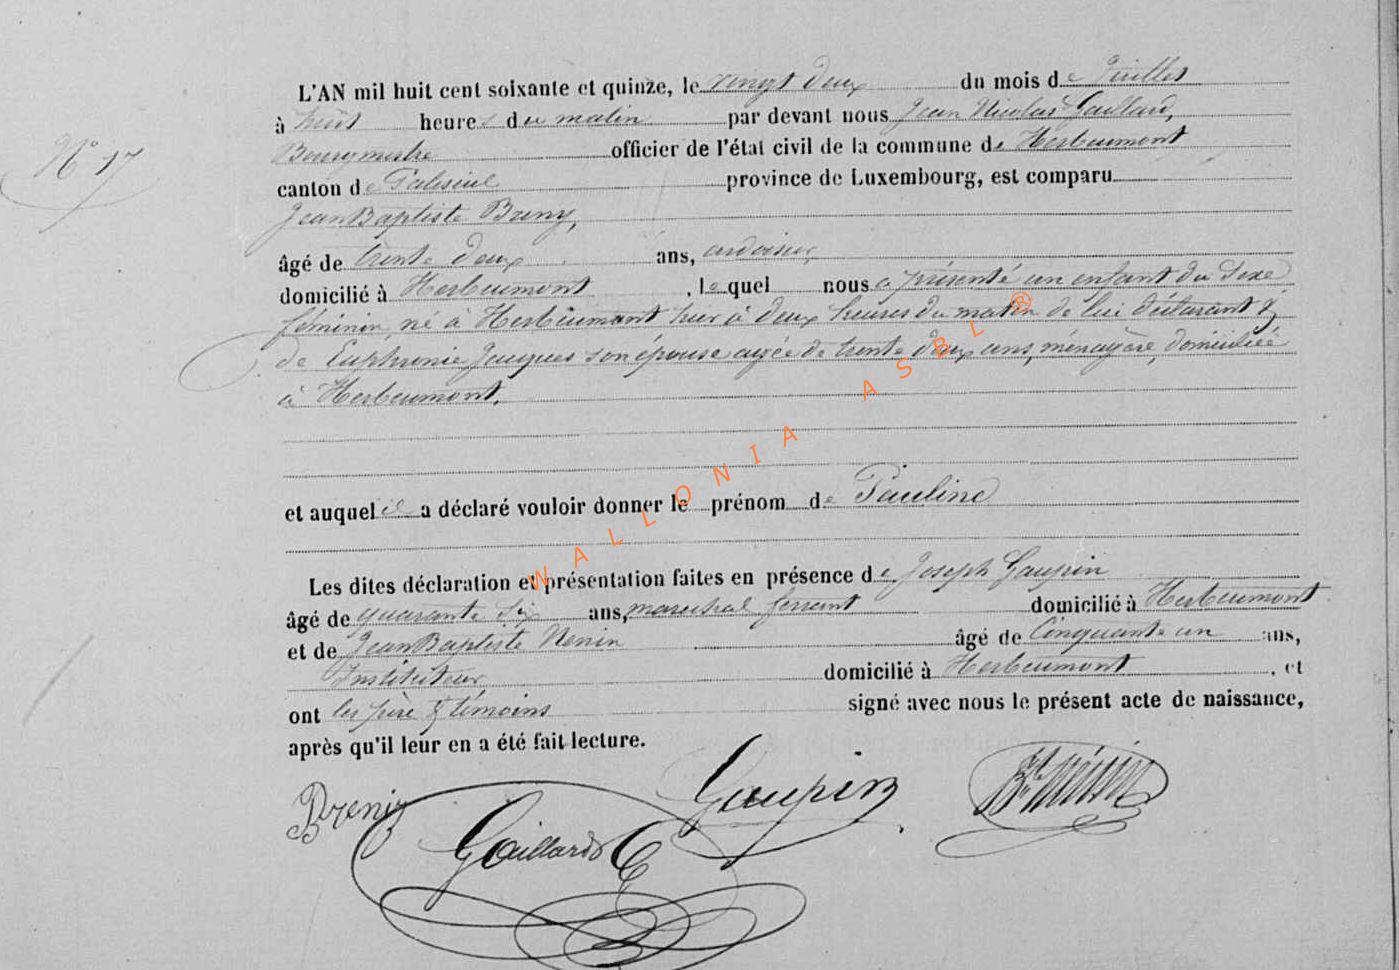 N° 17
L'AN mil huit cent soixante et quinze, le vingt deux du mois de Juillet
à huit heures du matin par devant nous Jean Nicolas Gaillard,
Bourgmestre officier de l'état civil de la commune de Herbeumont
canton de Paliseul province de Luxembourg, est comparu
Jean Baptiste Breny,
âgé de trente deux ans, ardoisier,
domicilié à Herbeumont, lequel nous a présenté un enfant du sexe
féminin, né à Herbeumont hier à deux heures du matin de lui déclarant &
de Euphronie Jacques son épouse agée de trente deux ans, ménagère, domiciliée
à Herbeumont.
et auquel il a déclaré vouloir donner le prénom de Pauline
Les dites déclaration et présentation faites en présence de Joseph Gaupin
âgé de quarante six ans, maréchal ferrant domicilié à Herbeumont
et de Jean Baptiste Nenin âgé de Cinquante un ans,
Instituteur domicilié à Herbeumont, et
ont les père & témoins signé avec nous le présent acte de naissance,
après qu'il leur en a été fait lecture.
Breny Gaupin Bte Nénin
Gaillard
WALLONIA ASBL ®